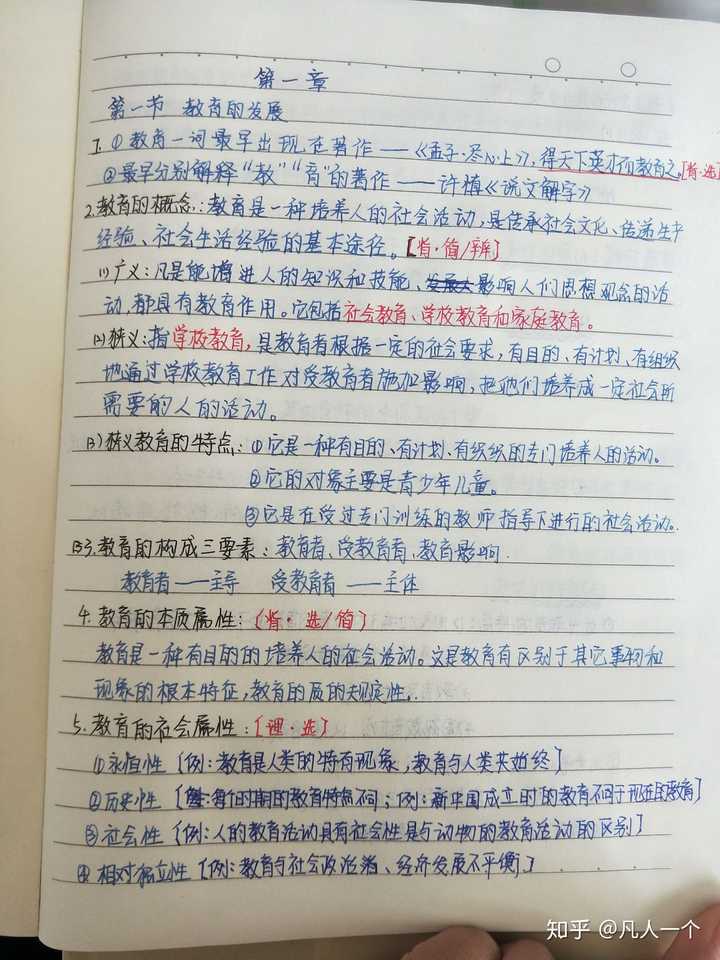 第一章
第一节 教育的发展
1. ①教育一词最早出现在著作——《孟子·尽心上》,得天下英才而教育之。[背·选]
②最早分别解释“教”“育”的著作——许慎《说文解字》
2.教育的概念:教育是一种培养人的社会活动,是传承社会文化、传递生产
经验、社会生活经验的基本途径。[背·简/辨]
(1)广义:凡是能增进人的知识和技能、影响人们思想观念的活
动,都具有教育作用。它包括社会教育、学校教育和家庭教育。
(2)狭义:指学校教育,是教育者根据一定的社会要求,有目的、有计划、有组织
地通过学校教育工作对受教育者施加影响,把他们培养成一定社会所
需要的人的活动。
(3)狭义教育的特点:①它是一种有目的、有计划、有组织的专门培养人的活动。
②它的对象主要是青少年儿童。
③它是在受过专门训练的教师指导下进行的社会活动。
3.教育的构成三要素:教育者、受教育者、教育影响.
教育者——主导 受教育者——主体
4.教育的本质属性:(背·选/简)
教育是一种有目的的培养人的社会活动。这是教育有区别于其它事物和
现象的根本特征,教育的质的规定性.
5.教育的社会属性:[理·选]
①永恒性[例:教育是人类的特有现象,教育与人类共始终]
②历史性[每个时期的教育特点不同;例:新中国成立时的教育不同于现在的教育]
③社会性[例:人的教育活动具有社会性是与动物的教育活动的区别]
④相对独立性[例:教育与社会政治、经济发展不平衡]
知乎 @凡人一个